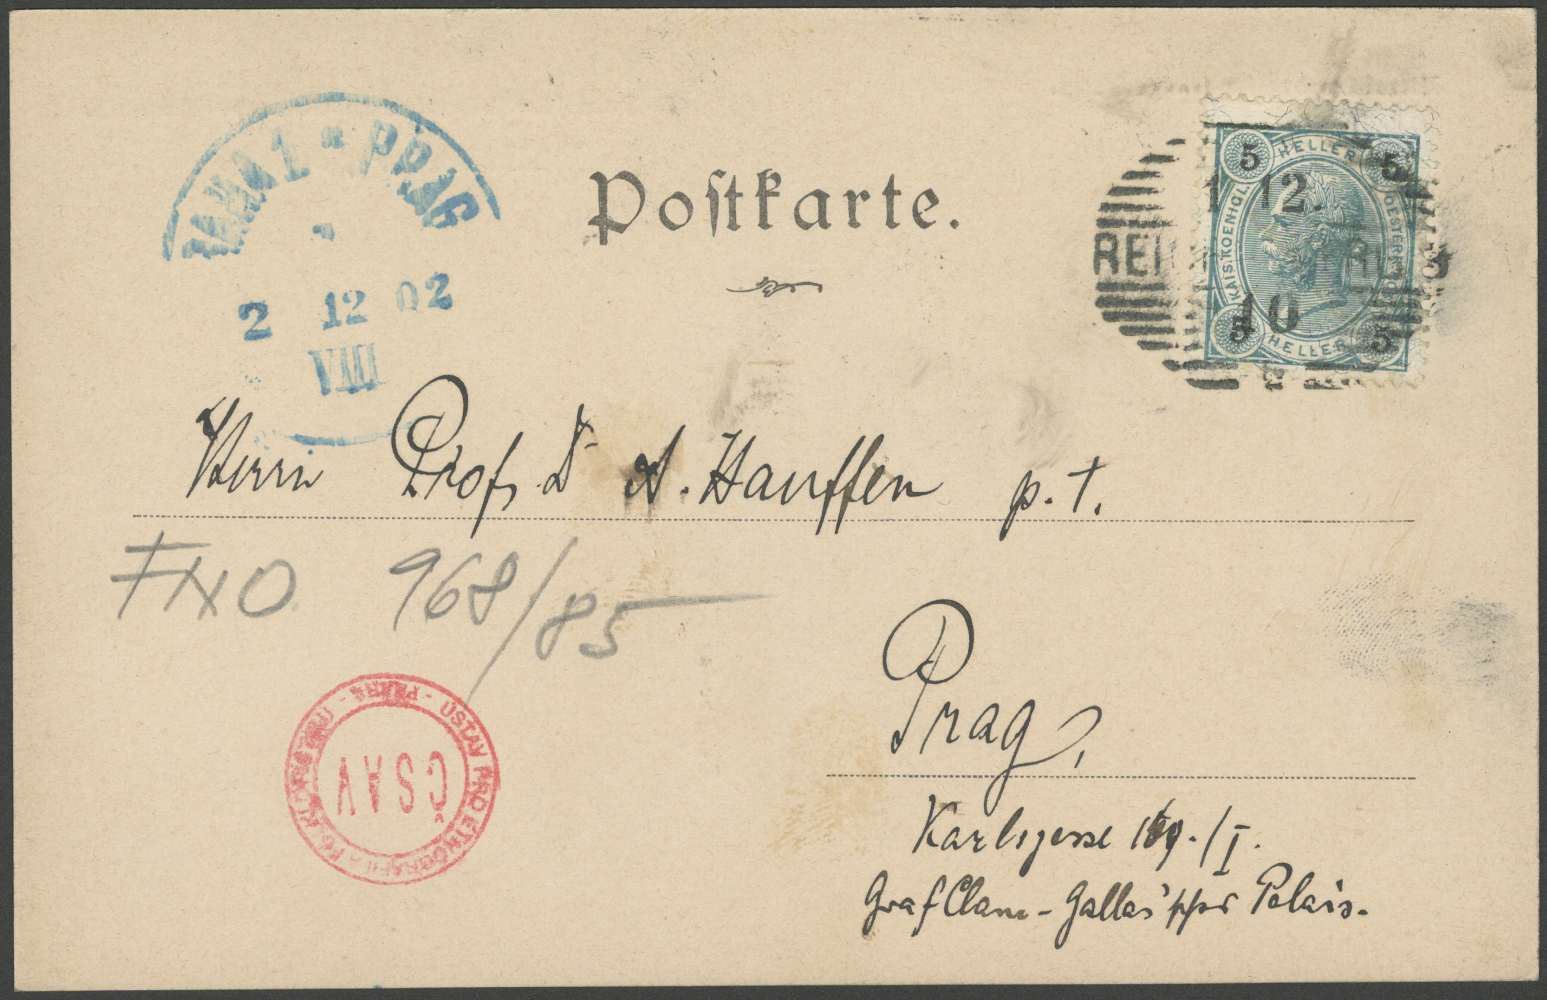 PRAHA 1 * PRAG
2 12 02
VIII
Postkarte.
5 HELLER 5
KAIS. KOENIGL.
1 12.
REI
10
5 HELLER 5
2
Herrn Prof. Dr A. Hauffen p. t.
FNO 968/85
Prag,
Karlsgasse 169./I.
Graf Clam-Gallas'sches Palais.
ÚSTAV PRO ETHNOGRAFII A FOLKLORISTIKU - PRAHA -
ČSAV